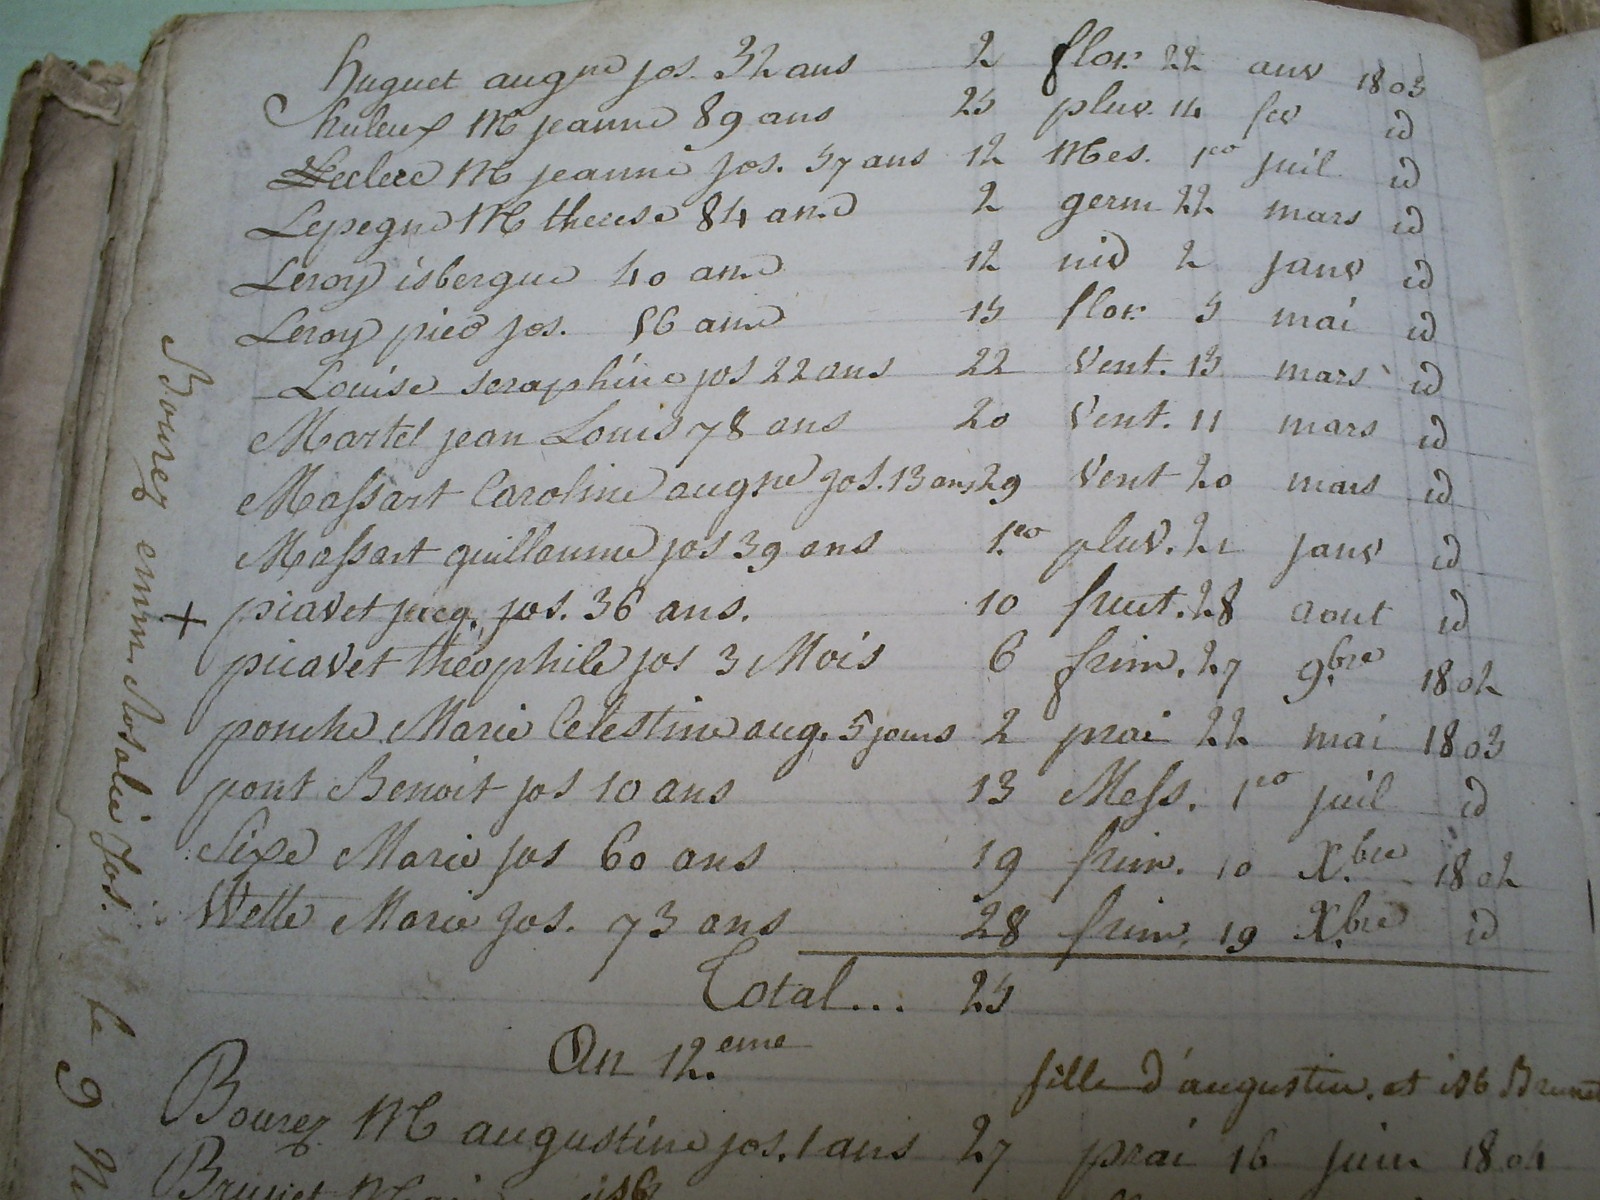 huguet augne jos. 32 ans 2 flor. 22 avr 1803
huleux M jeanne 89 ans 25 pluv. 14 fev id
Leclerc M jeanne jos. 37 ans 12 Mes. 1er juil id
Lepegne M therese 84 ans 2 germ 22 mars id
Leroy isbergue 40 ans 12 niv 2 janv id
Leroy piere jos. 56 ans 15 flor. 5 mai id
Louise seraphine jos 22 ans 22 Vent. 13 mars id
Martel jean Louis 78 ans 20 Vent. 11 mars id
Massart Caroline augne jos. 13 ans 29 Vent 20 mars id
Massart guillaume jos 39 ans 1er pluv. 21 janv id
+ picavet jacq. jos. 36 ans. 10 fruct. 28 aout id
picavet théophile jos 3 Mois 6 frim. 27 9.bre 1802
ponche Marie Celestine aug. 5 jours 2 prai 22 mai 1803
pont Benoit jos 10 ans 13 Mess. 1er juil id
Sixe Marie jos 60 ans 19 frim. 10 X.bre 1802
Wette Marie Jos. 73 ans 28 frim. 19 X.bre id
Total... 25
An 12.eme
fille d'augustin. et isb Brunet
Bourez M augustine jos. 1 ans 27 prai 16 juin 1804
Brunet isb
Bourez emm. Rosalie Jos. le 9